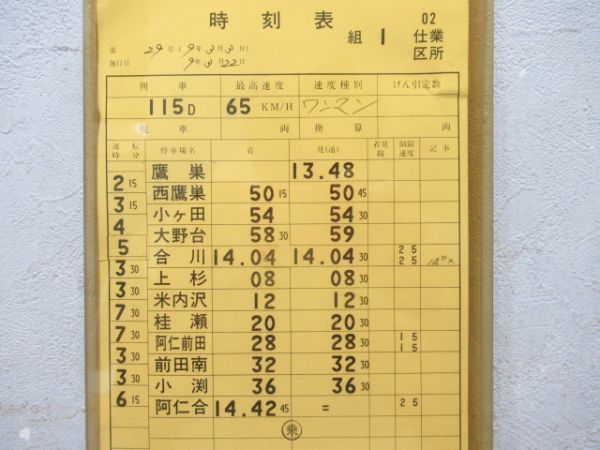 時刻表
組 1
02
仕業
区所
第 29号(9年3月3日)
施行日 9年3月22日
列車 最高速度 速度種別 けん引定数
115D 65 KM/H ワンマン
現車 両 換算 両
運転時分 停車場名 着 発(通) 着発線 制限速度 記事
鷹巣 13.48
2 15 西鷹巣 50 15 50 45
3 15 小ヶ田 54 54 30
4 大野台 58 30 59
5 合川 14.04 14.04 30 25 25
3 30 上杉 08 08 30
3 30 米内沢 12 12 30
7 30 桂瀬 20 20 30
7 30 阿仁前田 28 28 30 15 15
3 30 前田南 32 32 30
3 30 小渕 36 36 30
6 15 阿仁合 14.42 45 = 25
乗